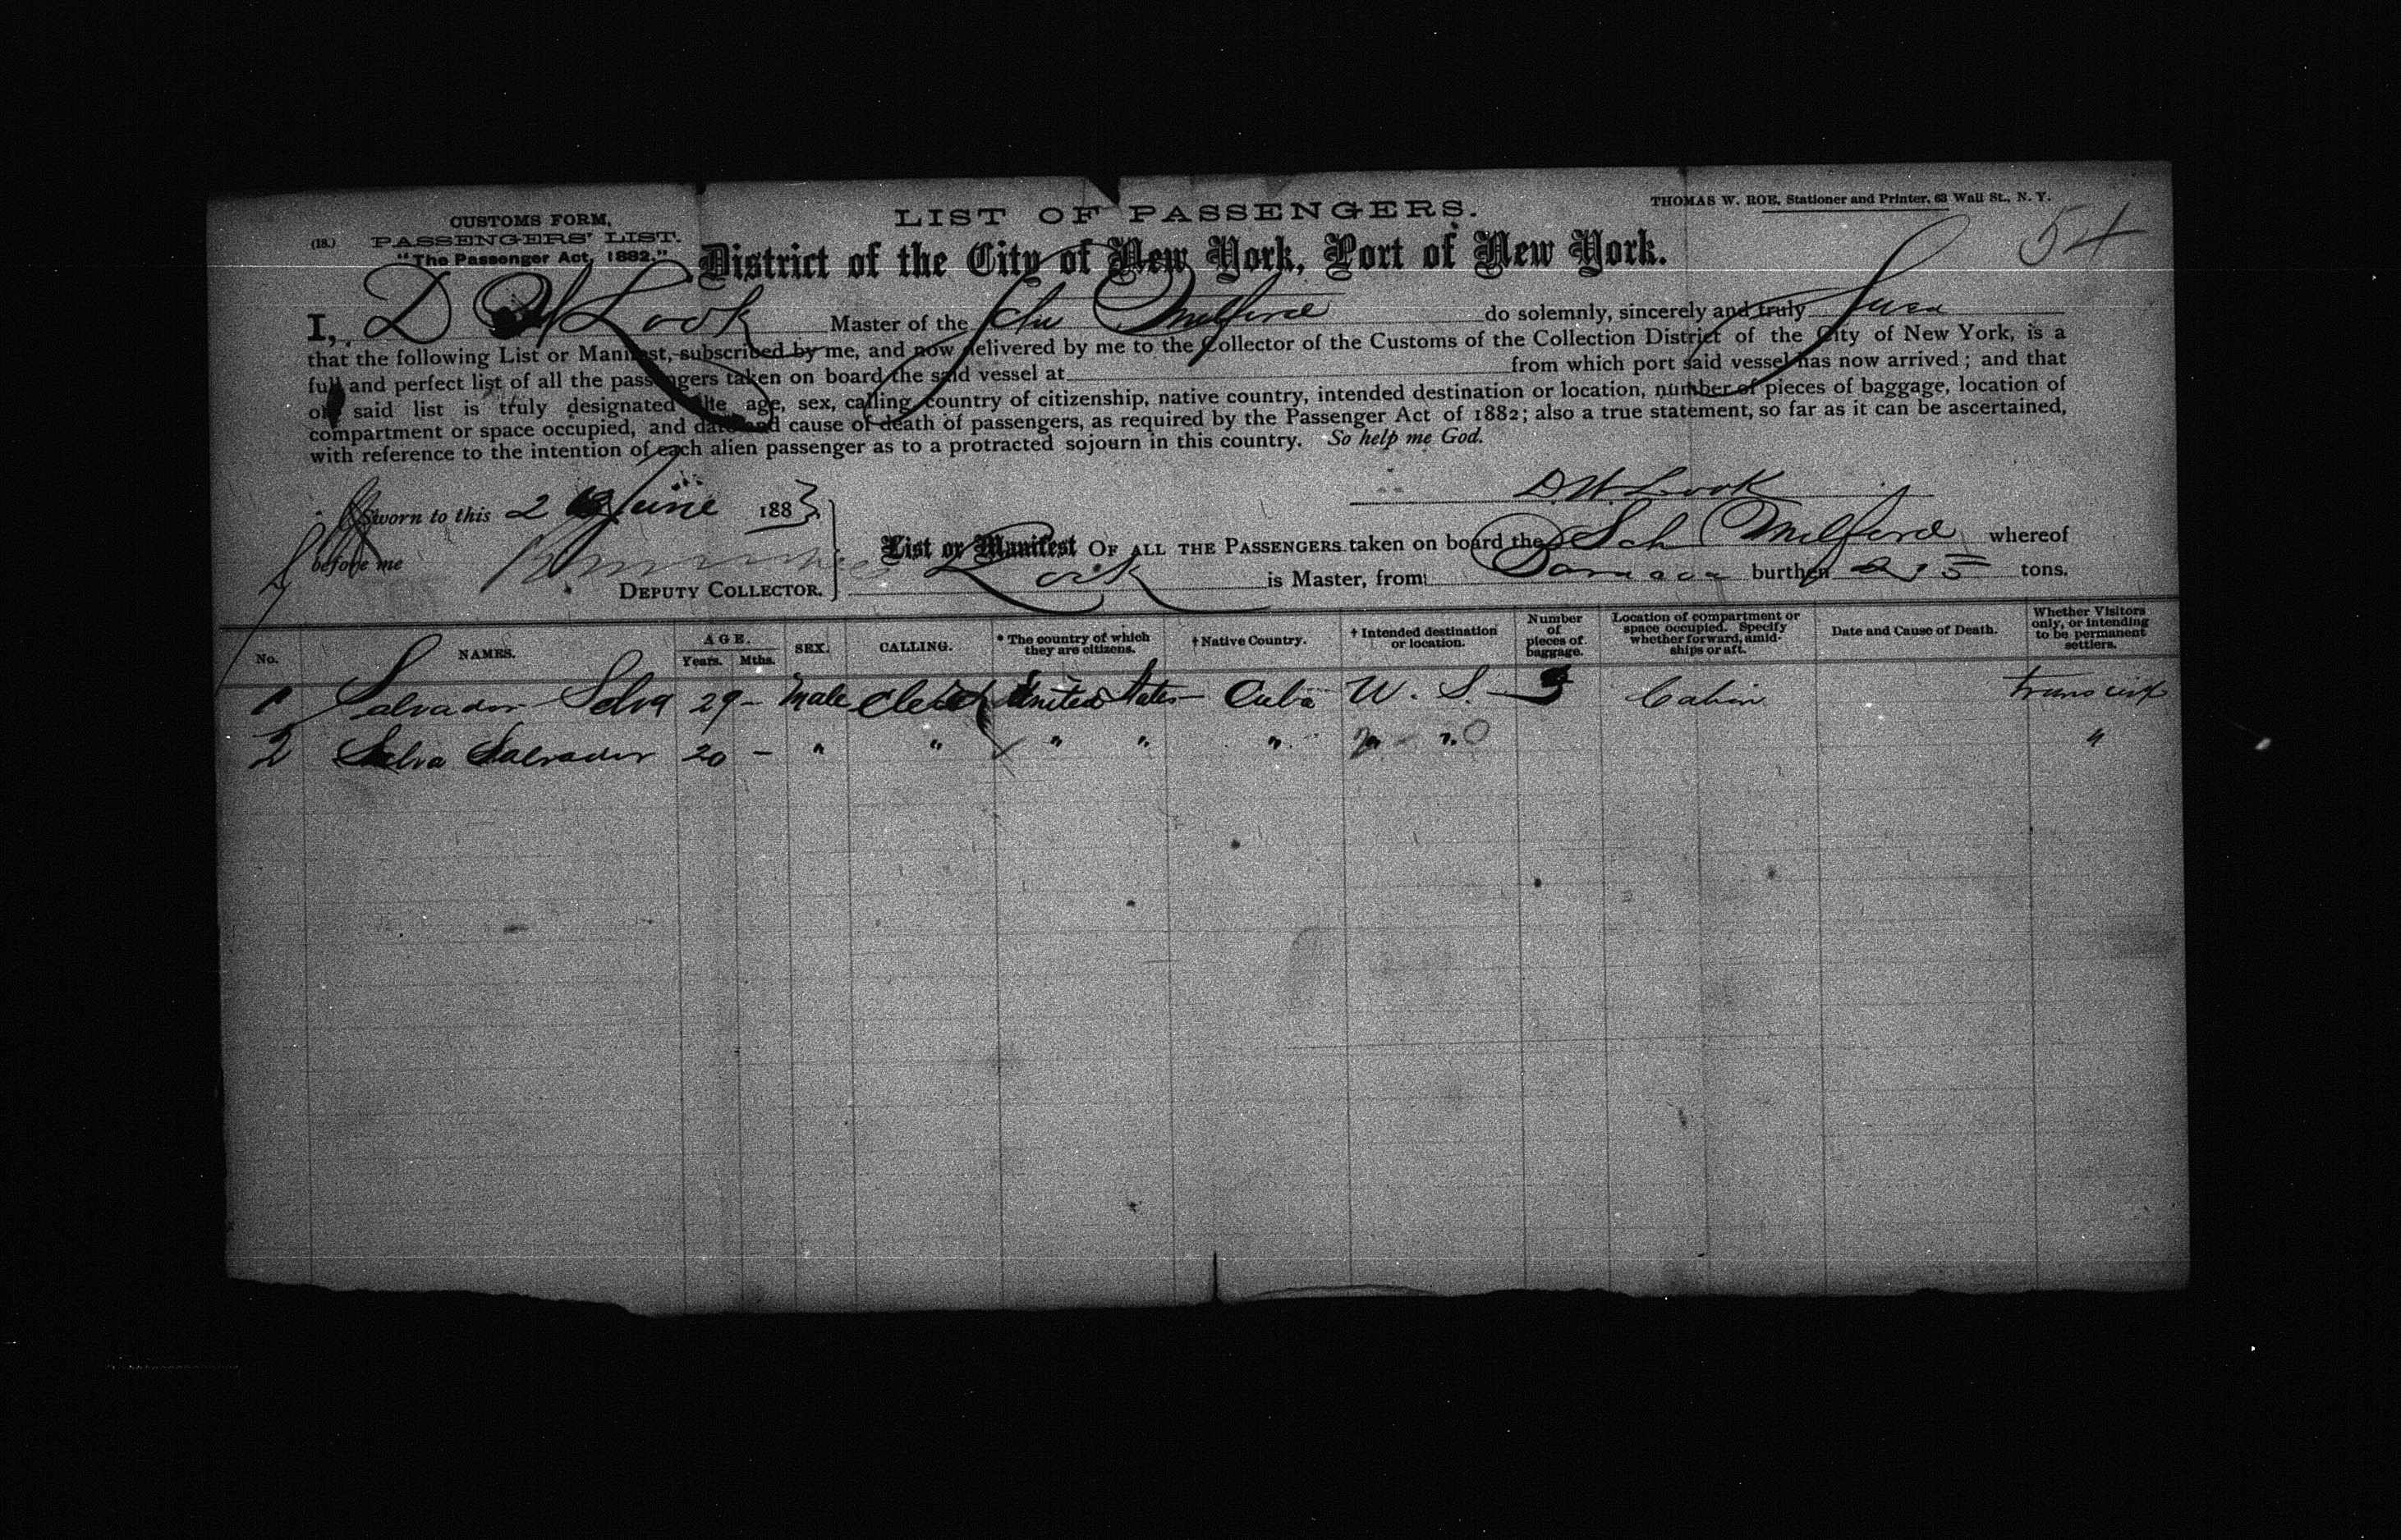 CUSTOMS FORM,
(18.) PASSENGERS' LIST.
"The Passenger Act, 1882."
LIST OF PASSENGERS.
THOMAS W. ROE, Stationer and Printer, 63 Wall St., N. Y.
54
District of the City of New York, Port of New York.
I, D W Look Master of the Sch Milford do solemnly, sincerely and truly Swear
that the following List or Manifest, subscribed by me, and now delivered by me to the Collector of the Customs of the Collection District of the City of New York, is a
full and perfect list of all the passengers taken on board the said vessel at from which port said vessel has now arrived; and that
on said list is truly designated the age, sex, calling, country of citizenship, native country, intended destination or location, number of pieces of baggage, location of
compartment or space occupied, and date and cause of death of passengers, as required by the Passenger Act of 1882; also a true statement, so far as it can be ascertained,
with reference to the intention of each alien passenger as to a protracted sojourn in this country. So help me God.
D. W. Look
Sworn to this 2 June 1883
before me
DEPUTY COLLECTOR.
List or Manifest OF ALL THE PASSENGERS taken on board the Sch Milford whereof
Look is Master, from burthen tons.
No. NAMES. AGE. Years. Mths. SEX. CALLING. * The country of which they are citizens. † Native Country. † Intended destination or location. Number of pieces of baggage. Location of compartment or space occupied. Specify whether forward, amidships or aft. Date and Cause of Death. Whether Visitors only, or intending to be permanent settlers.
1 Salvador Selva 29 - Male Clerk United States Cuba U. S. 3 Cabin transient
2 Selva Salvador 20 - " " " " " " " "